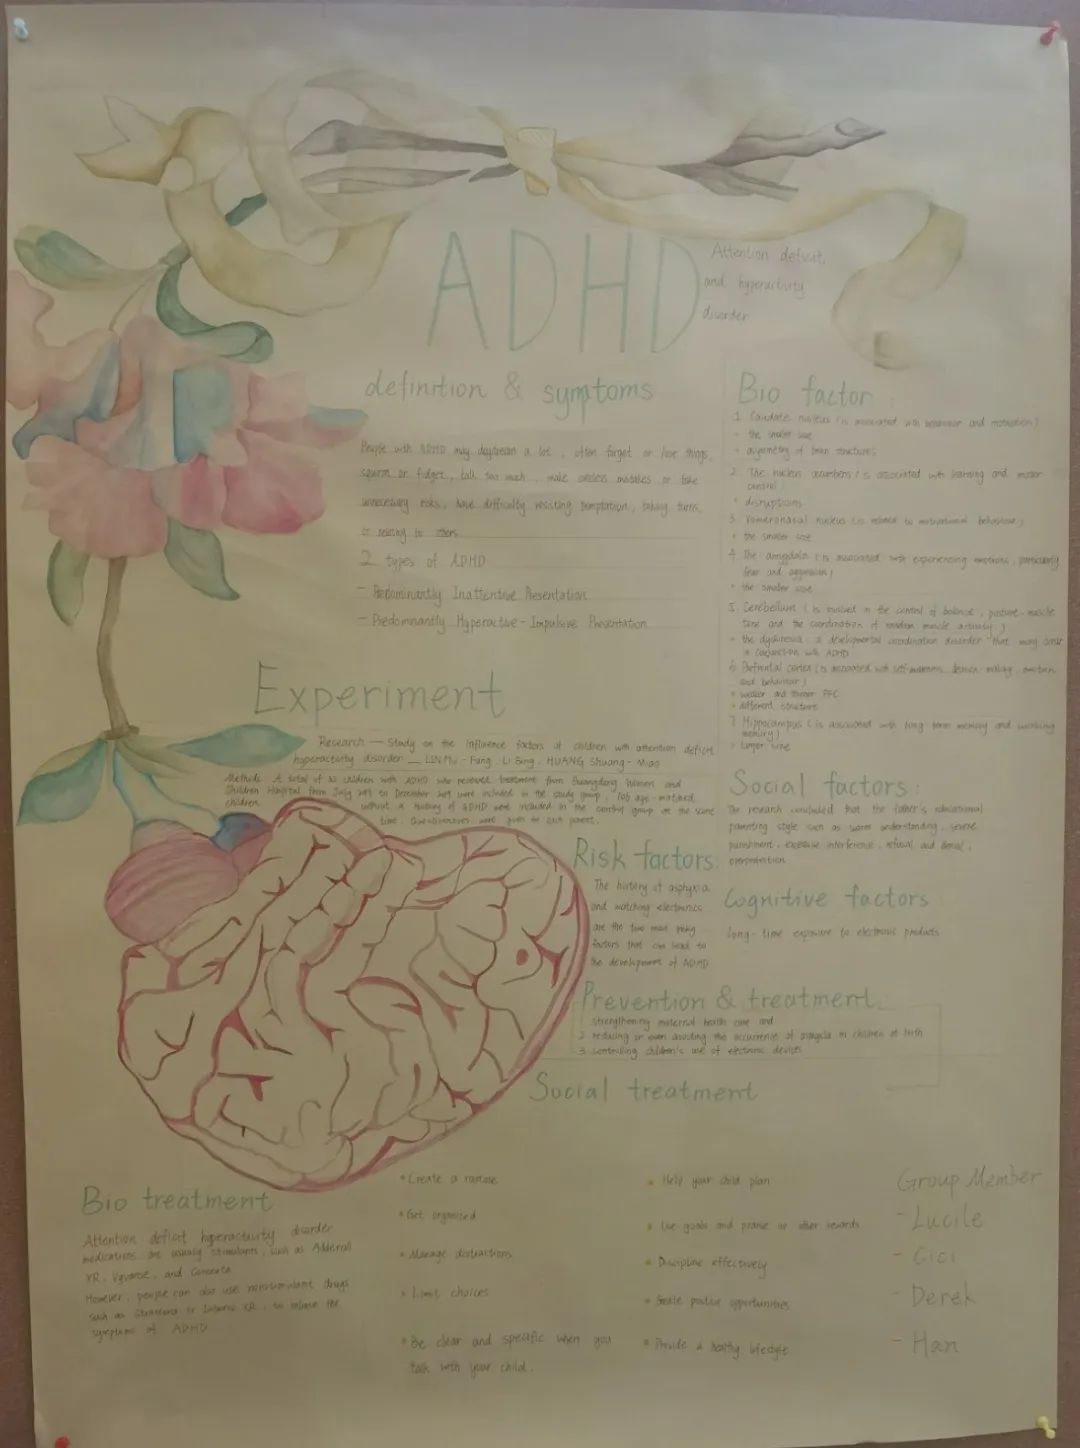 ADHD
Attention deficit,
and hyperactivity
disorder
definition & symptoms
People with ADHD may daydream a lot, often forget or lose things,
squirm or fidget, talk too much, make careless mistakes or take
unnecessary risks, have difficulty resisting temptation, taking turns,
or relating to others
2 types of ADHD
- Predominantly Inattentive Presentation
- Predominantly Hyperactive-Impulsive Presentation
Bio factor:
1. Caudate nucleus (is associated with behaviour and motivation)
the smaller size
asymmetry of brain structures
2. The nucleus accumbens (is associated with learning and motor
control)
disruptions
3. nucleus (is related to motivational behaviour)
the smaller size
4. The amygdala (is associated with experiencing emotions, particularly
fear and aggression)
the smaller size
5. Cerebellum (is involved in the control of balance, posture, muscle
tone and the coordination of random muscle activity)
the a developmental coordination disorder that may
in conjunction with ADHD
6. Prefrontal cortex (is associated with self-awareness, decision making, emotion
and behaviour)
weaker and PFC
different structure
7. Hippocampus (is associated with long term memory and working
memory)
larger size
Experiment
Research — Study on the influence factors of children with attention deficit
hyperactivity disorder — LIN Mu-Fang, LI Bing, HUANG Shuang-Miao
Methods: A total of children with ADHD who received treatment from Guangdong Women and
Children Hospital from July to December 2019 were included in the study group, 106 age-matched
children
without a history of ADHD were included in the control group at the same
time. Questionnaires were given to each parent.
Social factors:
The research concluded that the father's educational
parenting style such as warm understanding, severe
punishment, excessive interference, refusal and denial,
overprotection
Risk factors:
The history of asphyxia
and watching electronics
are the two main risky
factors that can lead to
the development of ADHD
Cognitive factors
long-time exposure to electronic products
Prevention & treatment:
1 strengthening maternal health care and
2 reducing or even avoiding the occurrence of in children at birth
3 controlling children's use of electronic devices
Social treatment
Create a routine
Get organized
Manage distractions
Limit choices
Be clear and specific when you
talk with your child.
Help your child plan
Use goals and praise or other rewards
Discipline effectively
positive opportunities
Provide a healthy lifestyle
Bio treatment
Attention deficit hyperactivity disorder
medications are usually stimulants, such as Adderall
XR, Vyvanse, and Concerta
However, people can also use nonstimulant drugs
such as Strattera or Intuniv XR, to relieve the
symptoms of ADHD
Group Member
- Lucile
- Cici
- Derek
- Han